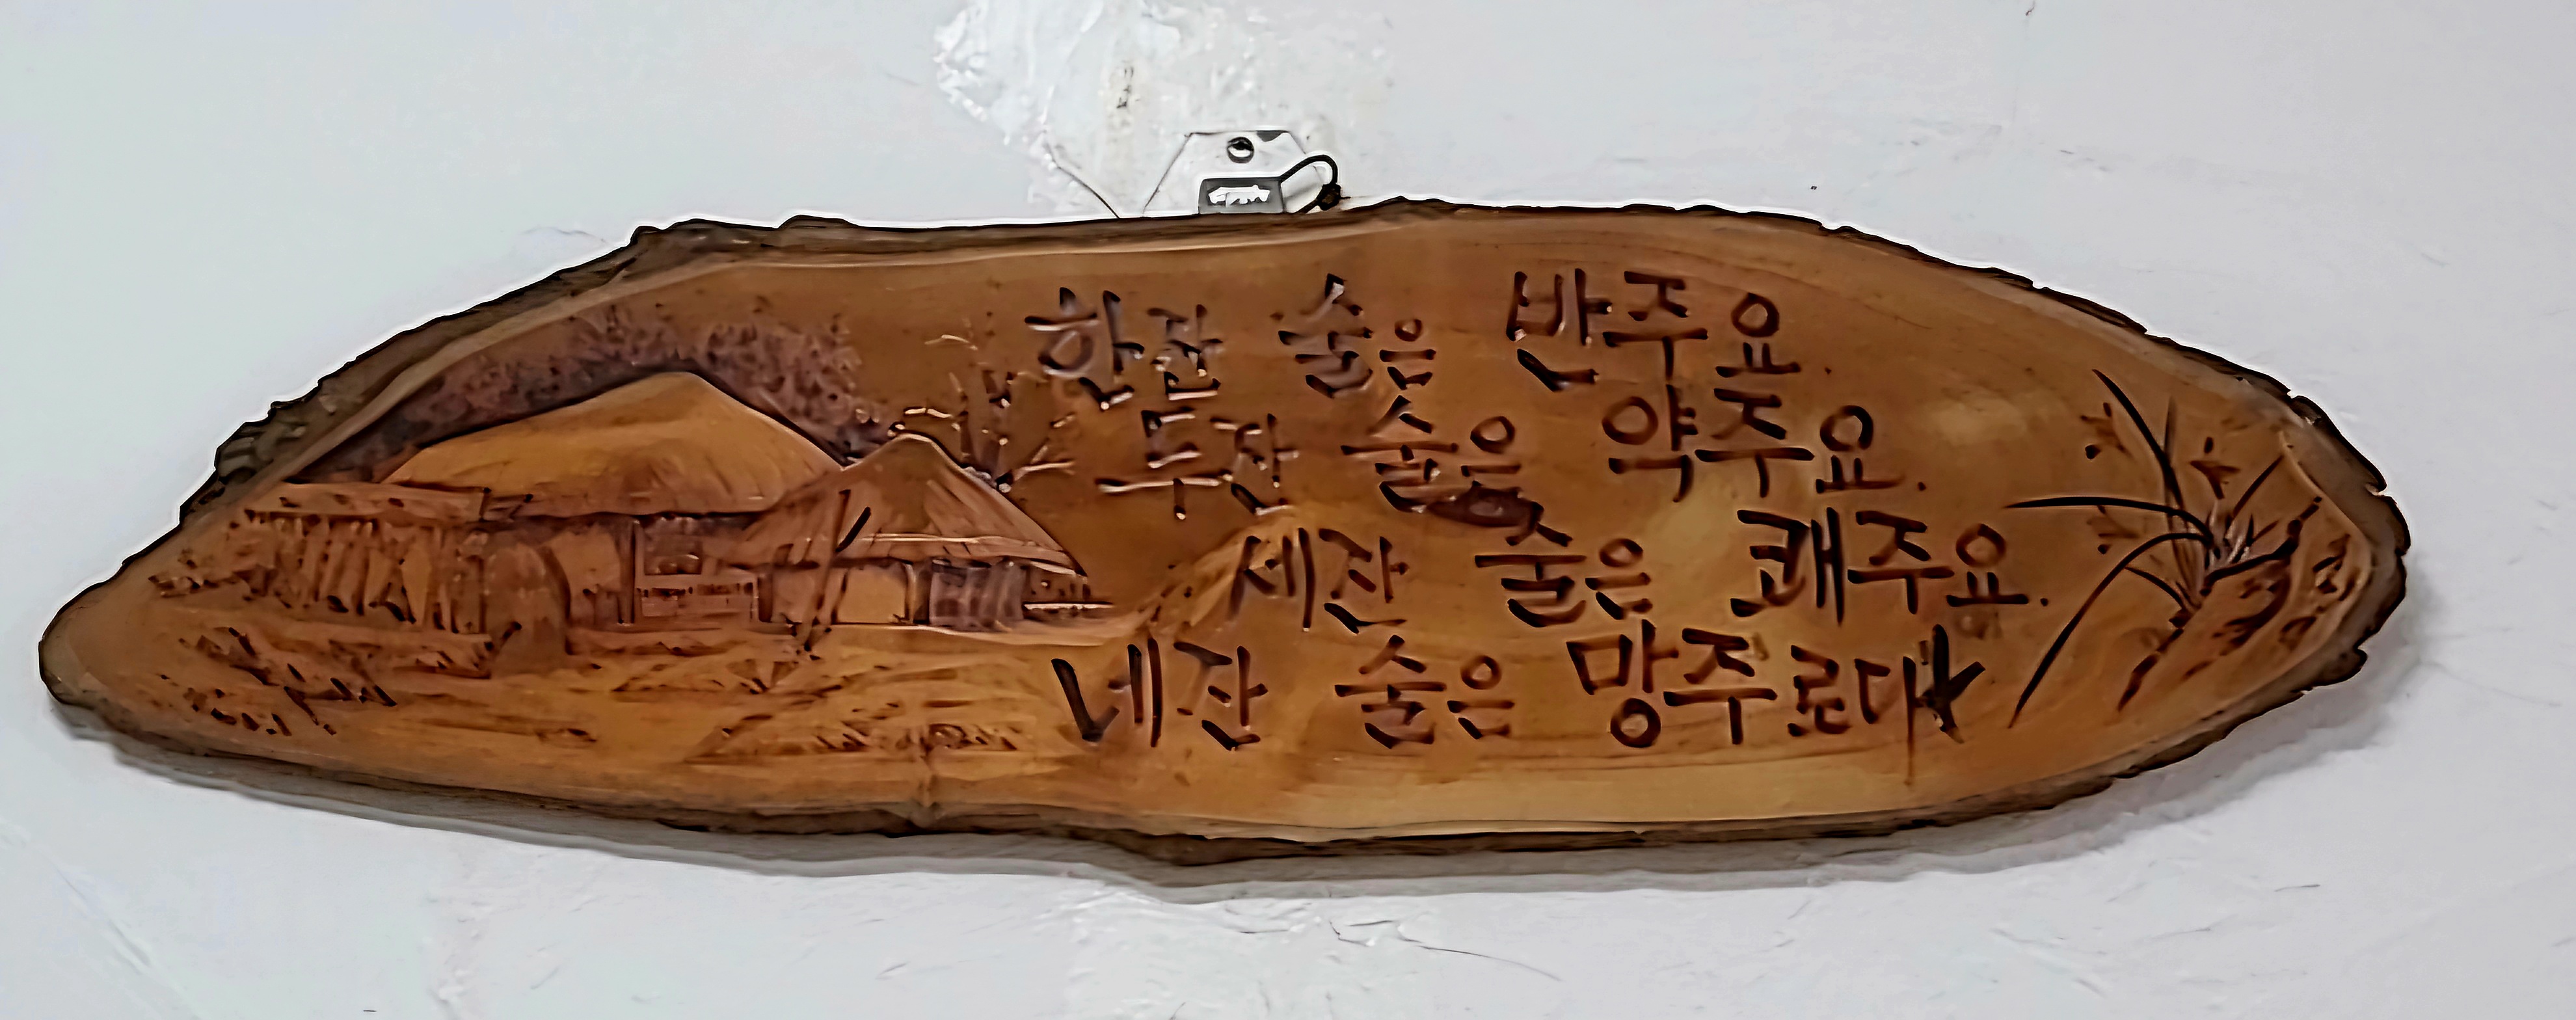 한잔 술은 반주요.
두잔 술은 약주요.
세잔 술은 쾌주요.
네잔 술은 망주로다